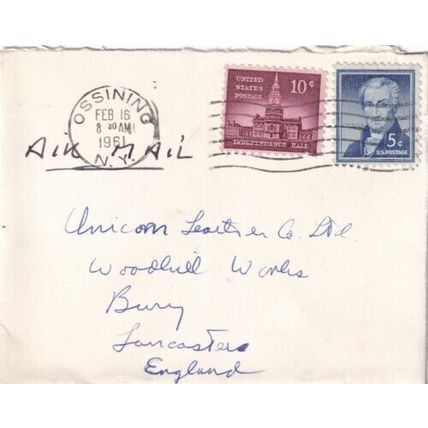 OSSINING
FEB 16
8 30 AM
1961
N.Y.
AIR MAIL
UNITED STATES POSTAGE
10¢
INDEPENDENCE HALL
5¢
U.S. POSTAGE
Unicorn Leather Co. Ltd
Woodhill Works
Bury
Lancaster
England